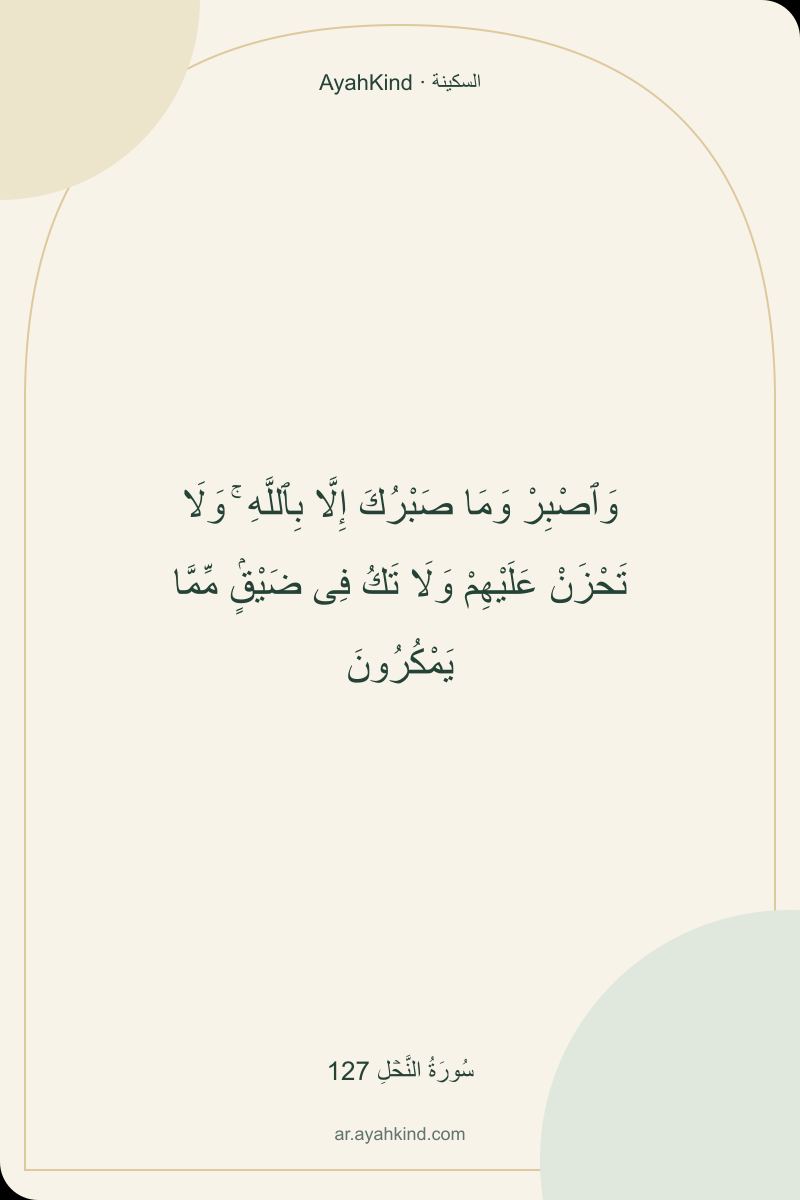 AyahKind · السكينة
وَٱصْبِرْ وَمَا صَبْرُكَ إِلَّا بِٱللَّهِ ۚ وَلَا
تَحْزَنْ عَلَيْهِمْ وَلَا تَكُ فِى ضَيْقٍۢ مِّمَّا
يَمْكُرُونَ
سُورَةُ النَّحۡلِ 127
ar.ayahkind.com